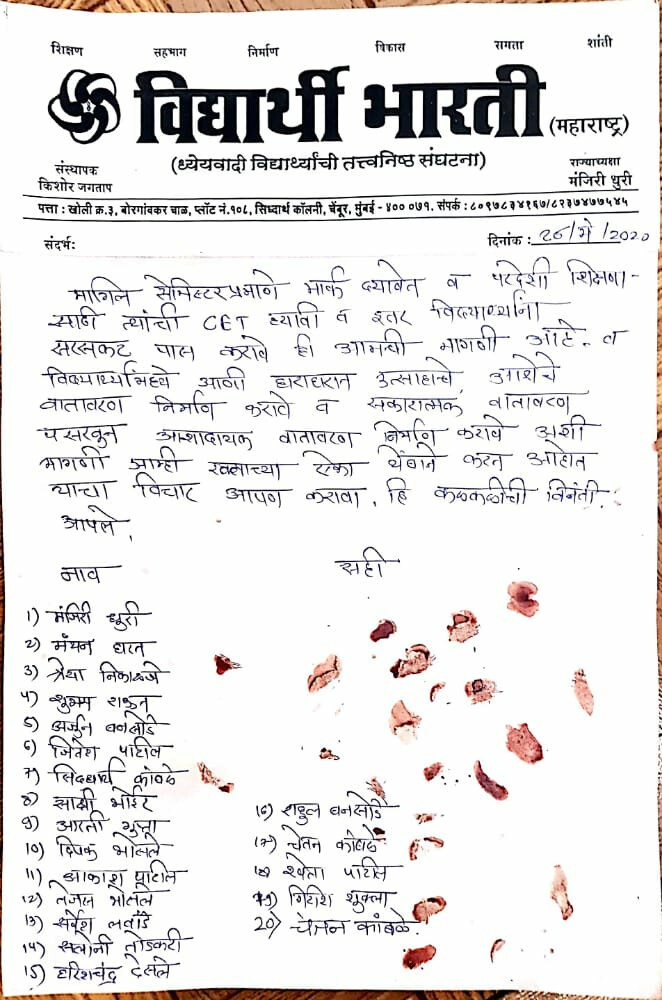 शिक्षण सहभाग निर्माण विकास समता शांती
विद्यार्थी भारती (महाराष्ट्र)
(ध्येयवादी विद्यार्थ्यांची तत्त्वनिष्ठ संघटना)
संस्थापक राज्याध्यक्षा
किशोर जगताप मंजिरी धुरी
पत्ता : खोली क्र.३, बोरगांवकर चाळ, प्लॉट नं.१०८, सिध्दार्थ कॉलनी, चेंबूर, मुंबई - ४०० ०७१. संपर्क : ८०९७८३४१६७/८२३७४७७५४५
संदर्भ: दिनांक : २८/मे/2020
मागिल सेमिस्टरप्रमाणे मार्क द्यावेत व परदेशी शिक्षणा-
साठी त्यांची CET घ्यावी व इतर विद्यार्थ्यांना
सरसकट पास करावे ही आमची मागणी आहे. व
विद्यार्थ्यांमध्ये आणी घराघरात उत्साहाचे, आशेचे
वातावरण निर्माण करावे व सकारात्मक वातावरण
पसरवून आशादायक वातावरण निर्माण करावे अशी
मागणी आम्ही रक्ताच्या ऐका थेंबाने करत आहोत
याचा विचार आपण करावा. हि कळकळीची विनंती.
आपले,
नाव सही
1) मंजिरी धुरी
2) मंथन धरत
3) श्रेया निकाळजे
4) शुभम राऊत
5) अर्जुन बनसोडे
6) जितेश पाटील
7) सिद्धार्थ कांबळे
8) साक्षी भोईर
9) आरती गुप्ता
10) दिपक भोसले
11) आकाश पाटील
12) तेजल भोसले
13) सर्वेश लवांडे
14) सलोनी तोडकरी
15) हरिश्चंद्र देसले
16) राहुल बनसोडे
17) चेतन कांबळे
18) श्वेता पाटील
19) गिरीश शुक्ला
20) चेतन कांबळे.